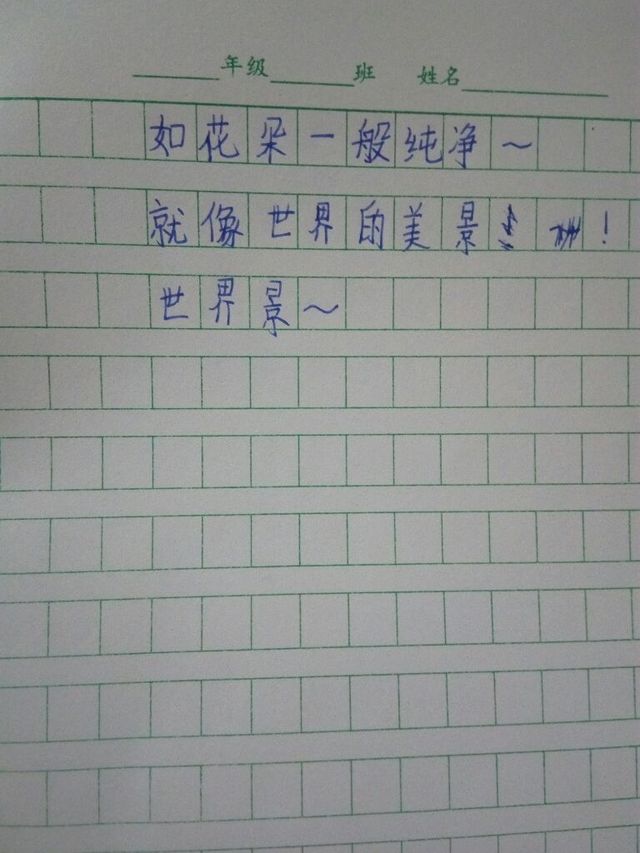 年级 班 姓名
如花朵一般纯净～
就像世界的美景！
世界景～